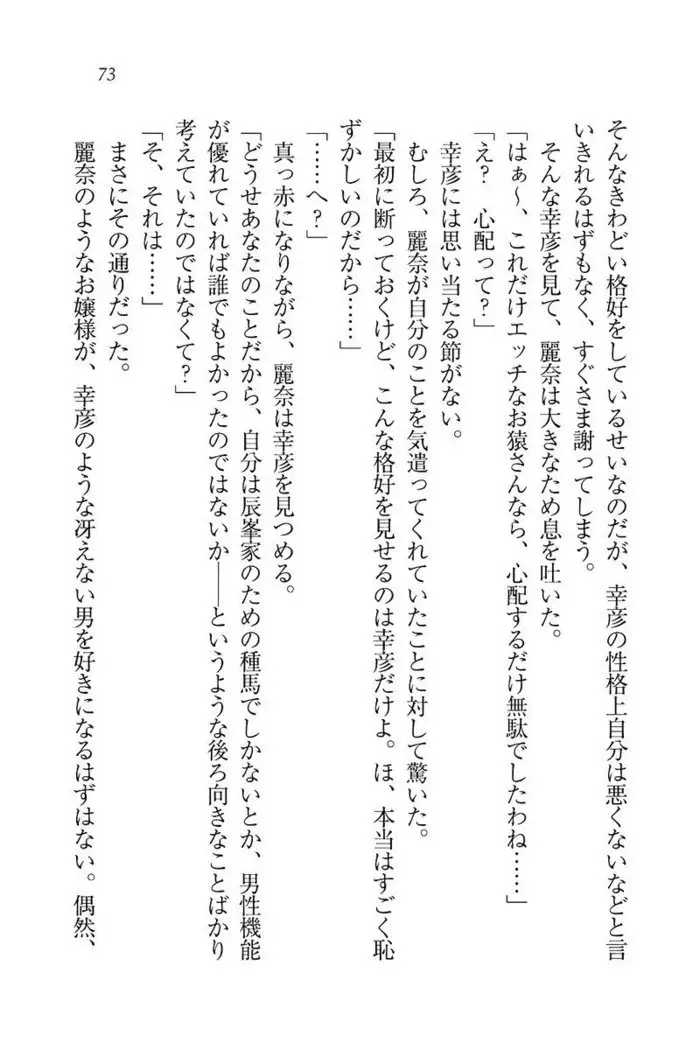 73
そんなきわどい格好をしているせいなのだが、幸彦の性格上自分は悪くないなどと言
いきれるはずもなく、すぐさま謝ってしまう。
そんな幸彦を見て、麗奈は大きなため息を吐いた。
「はぁ～、これだけエッチなお猿さんなら、心配するだけ無駄でしたわね……」
「え？　心配って？」
幸彦には思い当たる節がない。
むしろ、麗奈が自分のことを気遣ってくれていたことに対して驚いた。
「最初に断っておくけど、こんな格好を見せるのは幸彦だけよ。ほ、本当はすごく恥
ずかしいのだから……」
「……へ？」
真っ赤になりながら、麗奈は幸彦を見つめる。
「どうせあなたのことだから、自分は辰峯家のための種馬でしかないとか、男性機能
が優れていれば誰でもよかったのではないか――というような後ろ向きなことばかり
考えていたのではなくて？」
「そ、それは……」
まさにその通りだった。
麗奈のようなお嬢様が、幸彦のような冴えない男を好きになるはずはない。偶然、